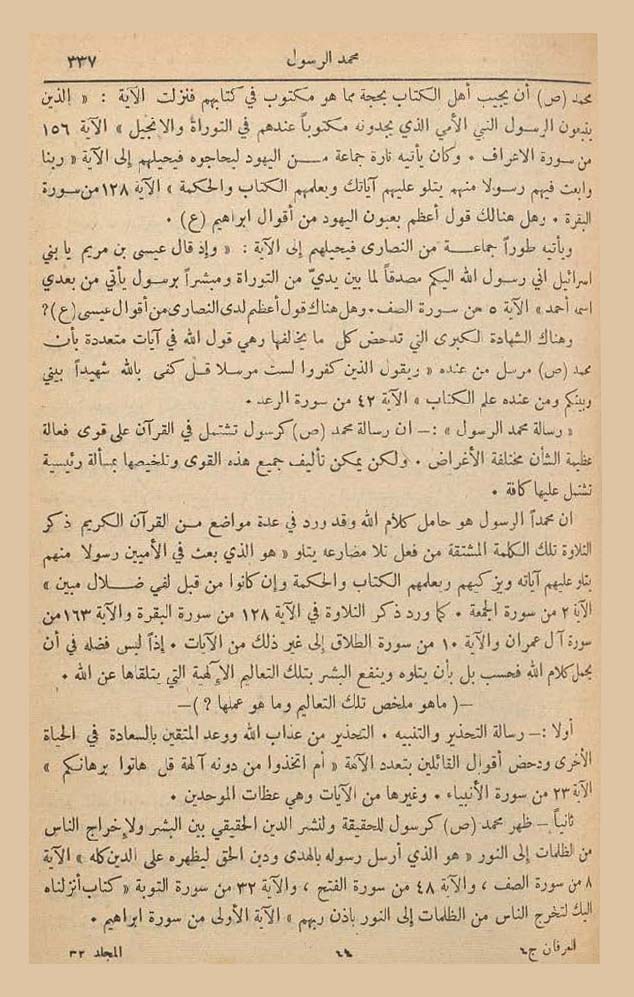 محمد الرسول ٣٣٧
محمد (ص) أن يجيب أهل الكتاب بحجة مما هو مكتوب في كتابهم فنزلت الآية : « الذين
يتبعون الرسول النبي الأمي الذي يجدونه مكتوباً عندهم في التوراة والانجيل » الآية ١٥٦
من سورة الاعراف . وكان يأتيه تارة جماعة من اليهود ليحاجوه فيحيلهم إلى الآية « ربنا
وابعث فيهم رسولا منهم يتلو عليهم آياتك ويعلمهم الكتاب والحكمة » الآية ١٢٨ من سورة
البقرة . وهل هنالك قول أعظم بعيون اليهود من أقوال ابراهيم (ع) .
ويأتيه طوراً جماعة من النصارى فيحيلهم إلى الآية : « وإذ قال عيسى بن مريم يا بني
اسرائيل اني رسول الله اليكم مصدقاً لما بين يديّ من التوراة ومبشراً برسول يأتي من بعدي
اسمه أحمد » الآية ٥ من سورة الصف . وهل هناك قول أعظم لدى النصارى من أقوال عيسى (ع) ؟
وهناك الشهادة الكبرى التي تدحض كل ما يخالفها وهي قول الله في آيات متعددة بأن
محمد (ص) مرسل من عنده « ويقول الذين كفروا لست مرسلا قل كفى بالله شهيداً بيني
وبينكم ومن عنده علم الكتاب » الآية ٤٢ من سورة الرعد .
« رسالة محمد الرسول » :— ان رسالة محمد (ص) كرسول تشتمل في القرآن على قوى فعالة
عظيمة الشأن مختلفة الأغراض . ولكن يمكن تأليف جميع هذه القوى وتلخيصها بمسألة رئيسية
تشتمل عليها كافة .
ان محمداً الرسول هو حامل كلام الله وقد ورد في عدة مواضع من القرآن الكريم ذكر
التلاوة تلك الكلمة المشتقة من فعل تلا مضارعه يتلو « هو الذي بعث في الأميين رسولا منهم
يتلو عليهم آياته ويزكيهم ويعلمهم الكتاب والحكمة وإن كانوا من قبل لفي ضلال مبين »
الآية ٢ من سورة الجمعة . كما ورد ذكر التلاوة في الآية ١٢٨ من سورة البقرة والآية ١٦٣ من
سورة آل عمران والآية ١٠ من سورة الطلاق إلى غير ذلك من الآيات . إذاً ليس فضله في أن
يحمل كلام الله فحسب بل بأن يتلوه وينفع البشر بتلك التعاليم الإلهية التي يتلقاها عن الله .
—( ماهو ملخص تلك التعاليم وما هو عملها ? )—
أولا :— رسالة التحذير والتنبيه . التحذير من عذاب الله ووعد المتقين بالسعادة في الحياة
الأخرى ودحض أقوال القائلين بتعدد الآلهة « أم اتخذوا من دونه آلهة قل هاتوا برهانكم »
الآية ٢٣ من سورة الأنبياء . وغيرها من الآيات وهي عظات الموحدين .
ثانياً — ظهر محمد (ص) كرسول للحقيقة ولنشر الدين الحقيقي بين البشر ولإخراج الناس
من الظلمات إلى النور « هو الذي أرسل رسوله بالهدى ودين الحق ليظهره على الدين كله » الآية
٨ من سورة الصف ، والآية ٤٨ من سورة الفتح ، والآية ٣٢ من سورة التوبة « كتاب أنزلناه
اليك لتخرج الناس من الظلمات إلى النور باذن ربهم » الآية الأولى من سورة ابراهيم .
العرفان ج٤ المجلد ٣٢